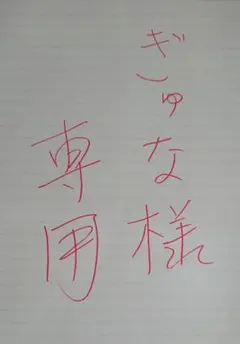 ぎゅな様
専用